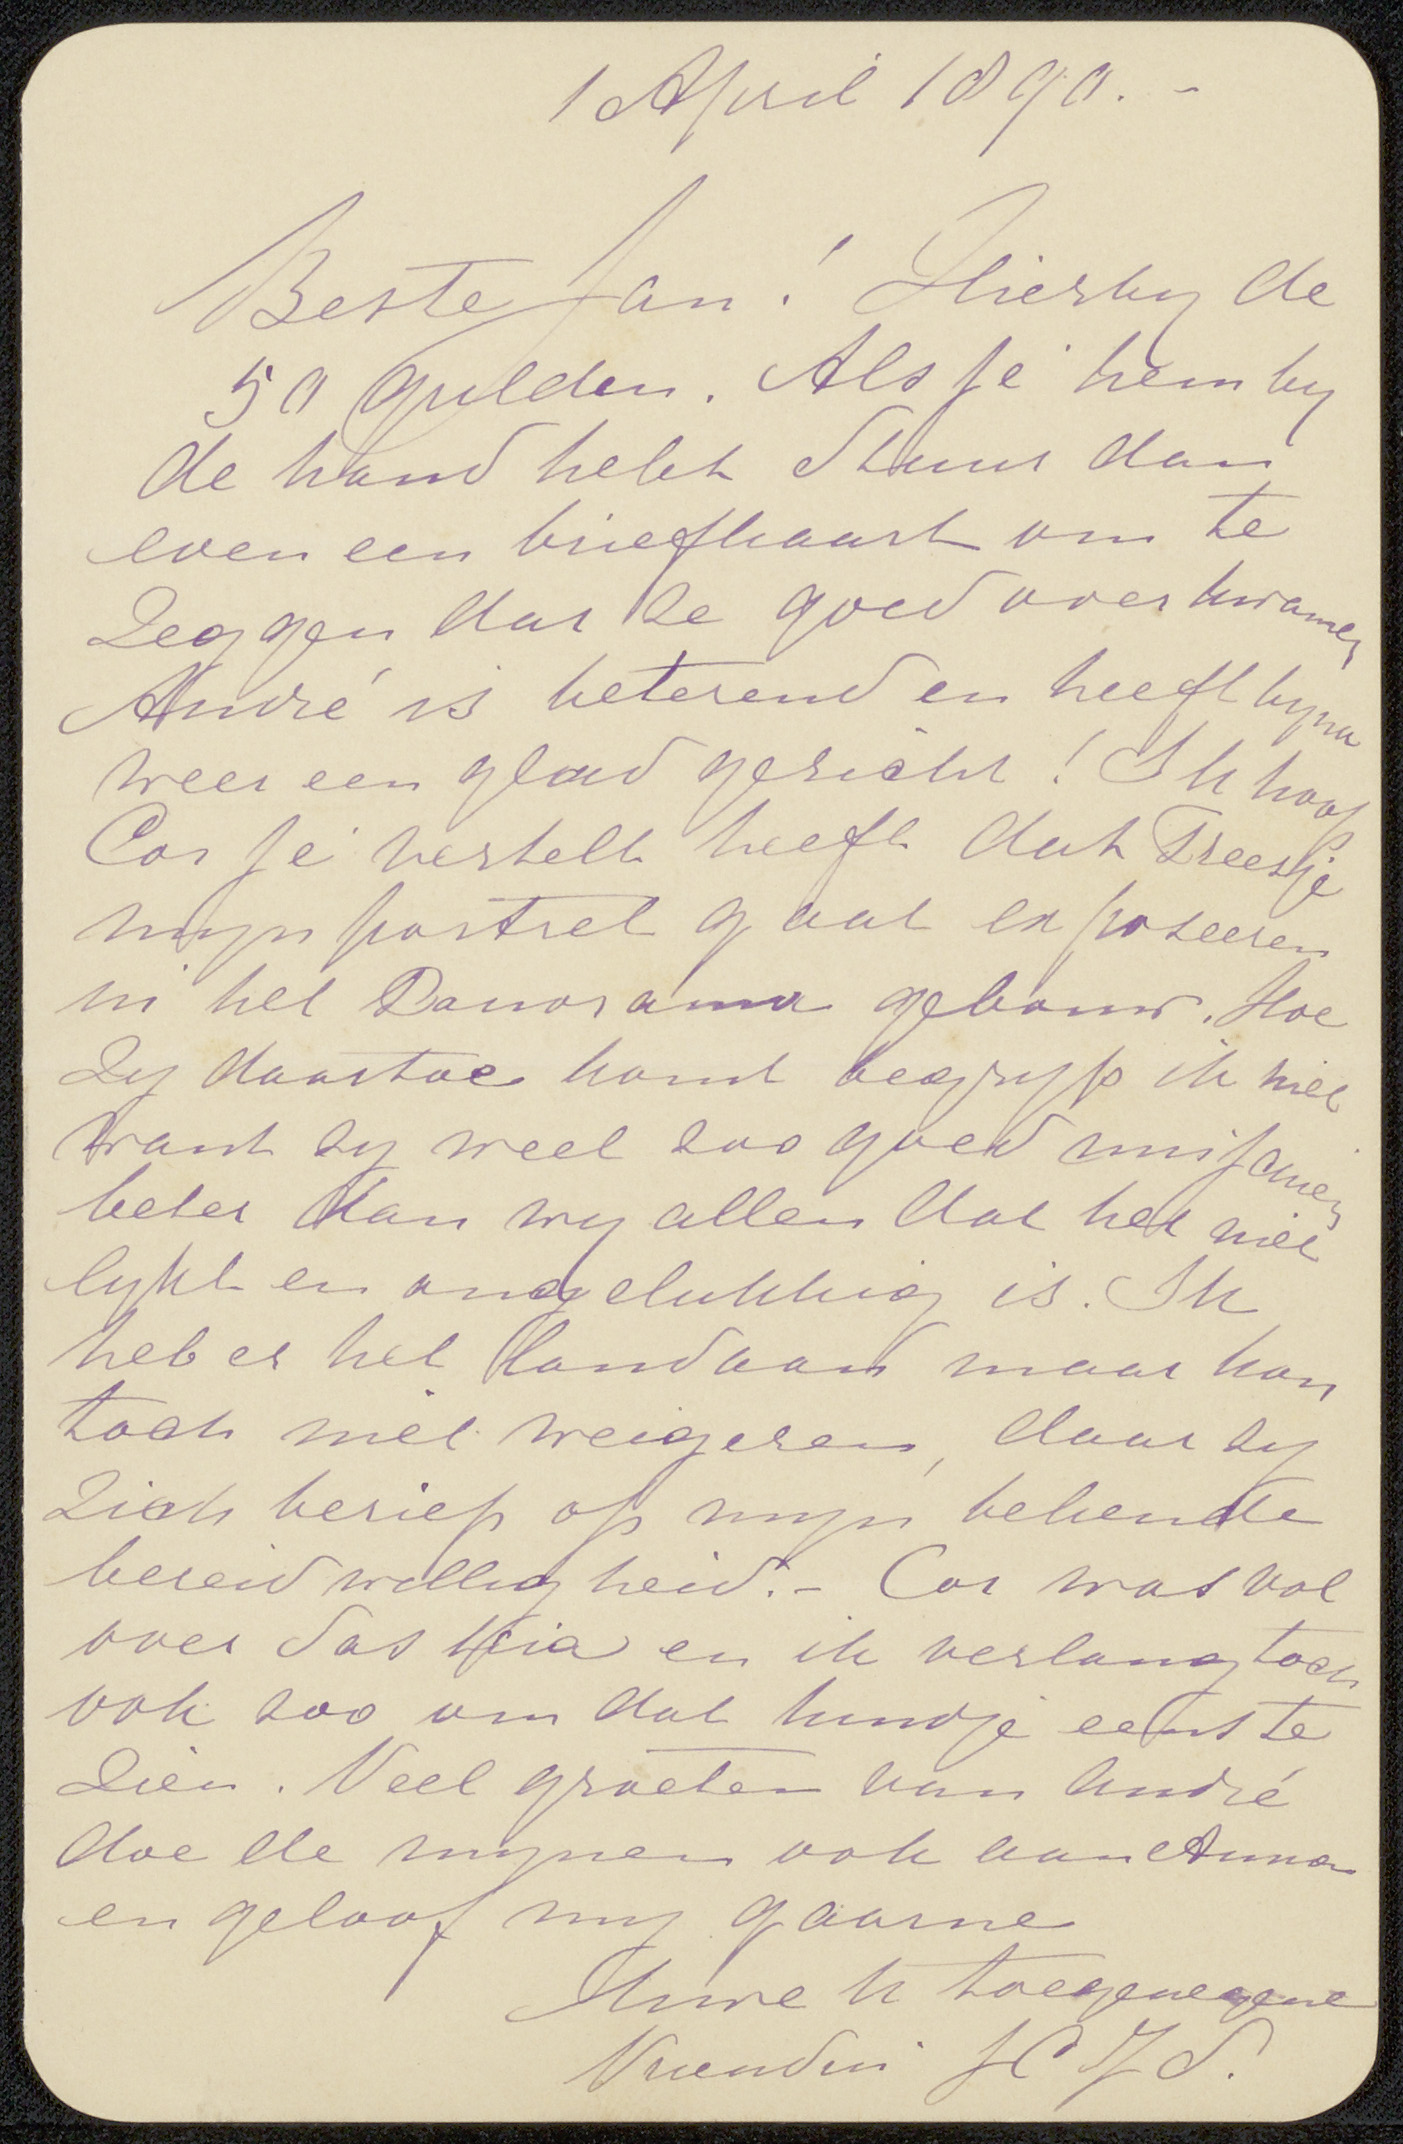 1 April 1890. -
Beste Jan! Hierby de
50 gulden. Als je hem by
de hand hebt stuur dan
even een briefkaart om te
zeggen dat ze goed overkwamen
André is beterend en heeft byna
weer een glad gezicht! Ik hoop
Cor je vertelt heeft dat Treesje
myn portret gaat exposeeren
in het Panorama gebouw. Hoe
Zy daartoe komt begryp ik niet
want zy weet zoo goed
beter dan wy allen dat het niet
lykt en ongelukkig is. Ik
heb er het land aan maar kon
toch niet weigeren, daar zy
Zich beriep op myn bekende
bereidwilligheid. - Cor was vol
over Saskia en ik verlang toch
ook zoo om dat hundje eens te
Zien. Veel groeten van André
doe de mynen ook aan Anna
en geloof my gaarne
Uwe toegenegene
Vriendin